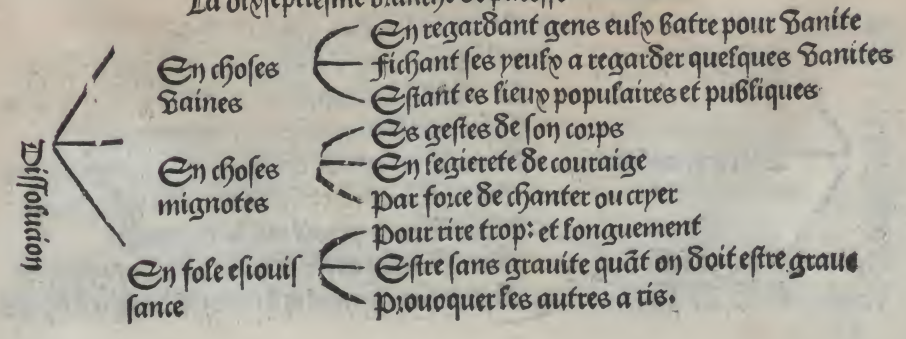 La dixseptiesme branche de
Dissolucion
En choses
vaines
En regardant gens eulx batre pour vanite
Fichant ses yeulx a regarder quelques vanites
Estant es lieux populaires et publiques
En choses
mignotes
Es gestes de son corps
En legierete de couraige
Par force de chanter ou cryer
En fole esiouis
sance
Pour rire trop: et longuement
Estre sans grauite quāt on doit estre graue
Prouoquer les autres a ris.